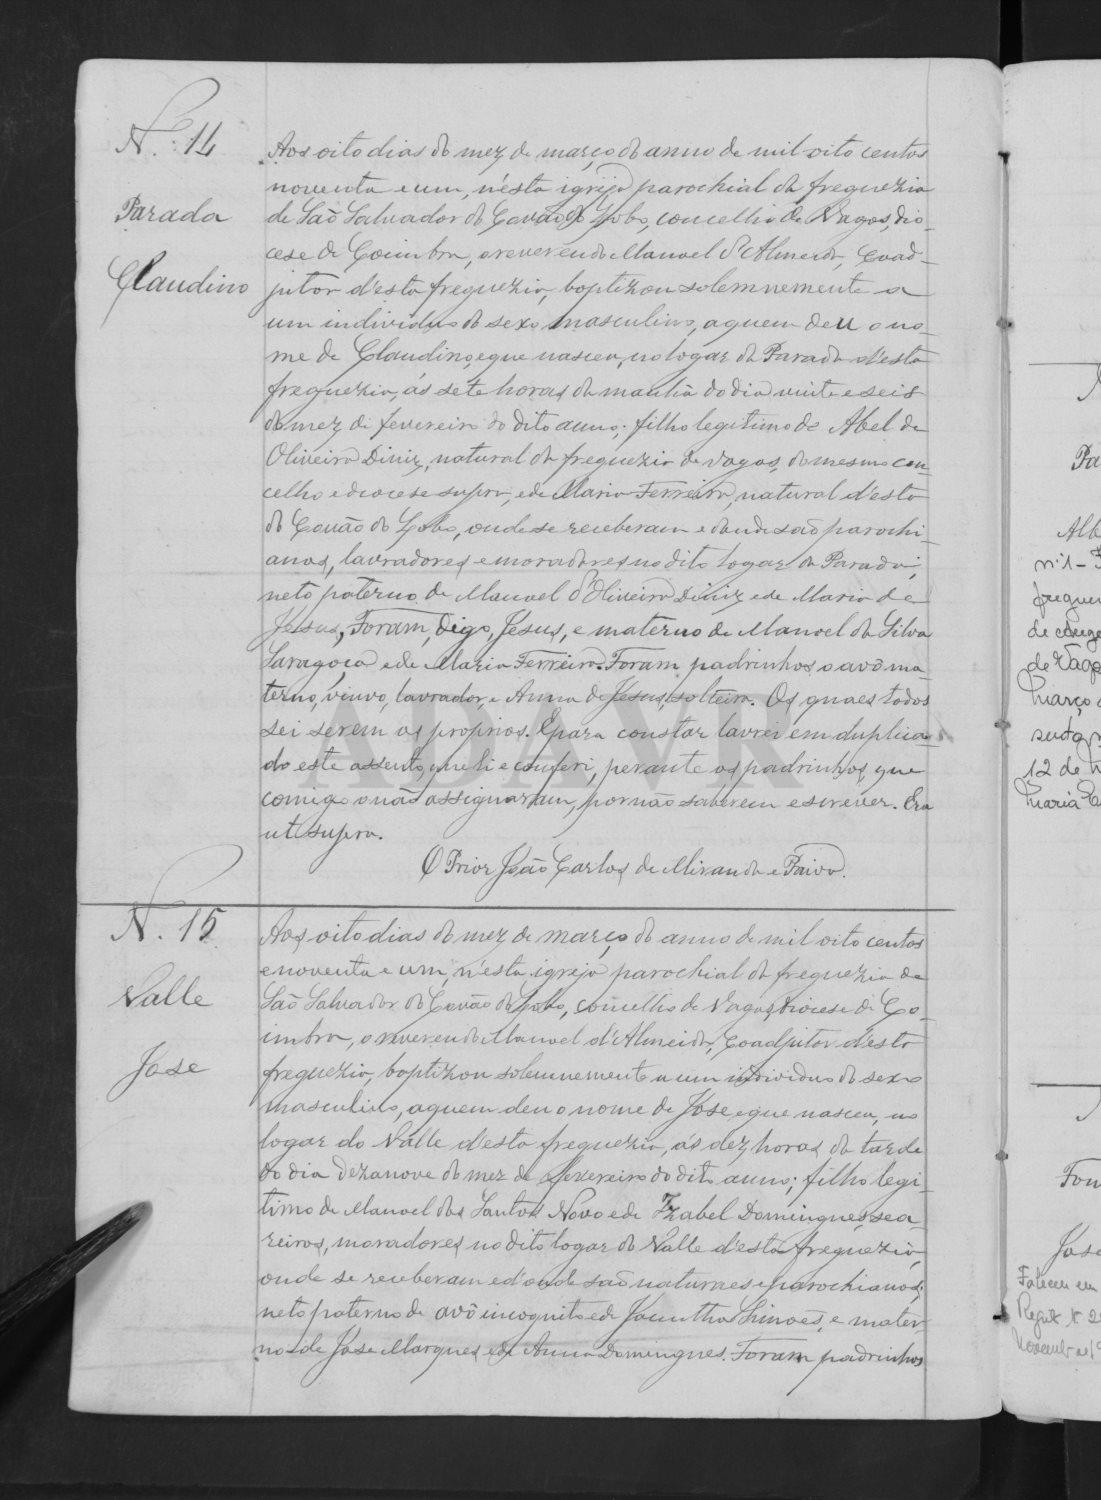 N.º 14
Parada
Claudino
Aos oito dias do mez de março do anno de mil oito centos
noventa e um, n'esta igrija parochial da freguezia
de São Salvador do Covão do Lobo, concelho de Vagos, dio-
cese de Coimbra, o reverendo Manoel d'Almeida, Coad-
jutor d'esta freguezia, baptizou solemnemente a
um individuo do sexo masculino, a quem deu o no-
me de Claudino, e que nasceu, no logar da Parada d'esta
freguezia, ás sete horas da manhã do dia vinte e seis
do mez de fevereiro do dito anno; filho legitimo de Abel de
Oliveira Diniz, natural da freguezia de Vagos, do mesmo con-
celho e diocese supra, e de Maria Ferreira, natural d'esta
do Covão do Lobo, onde se receberam e donde são parochi-
anos, lavradores e moradores no dito logar da Parada;
neto paterno de Manoel d'Oliveira Diniz e de Maria de
Jesus, Foram, digo, Jesus, e materno de Manoel da Silva
Saragoça e de Maria Ferreira. Foram padrinhos o avô ma-
terno, viuvo, lavrador, e Anna de Jesus, solteira. Os quaes todos
sei serem os proprios. E para constar lavrei em duplica-
do este assento, que li e conferi, perante os padrinhos, que
comigo o não assignaram, por não saberem escrever. Era
ut supra.
O Prior João Carlos de Miranda e Paiva.
N. 15
Valle
Jose
Aos oito dias do mez de março do anno de mil oito centos
e noventa e um, n'esta igreja parochial da freguezia de
São Salvador do Covão do Lobo, concelho de Vagos, diocese de Co-
imbra, o reverendo Manoel d'Almeida, Coadjutor d'esta
freguezia, baptizou solemnemente a um individuo do sexo
masculino, a quem deu o nome de Jose, e que nasceu, no
logar do Valle d'esta freguezia, as dez horas da tarde
do dia dezanove do mez de fevereiro do dito anno; filho legi-
timo de Manoel dos Santos Novo e de Izabel Domingues, sea-
reiros, moradores no dito logar do Valle d'esta freguezia,
onde se receberam e d'onde são naturaes e parochianos;
neto paterno de avô incognito e de Jacintha Simões, e mater-
no de Jose Marques e de Anna Domingues. Foram padrinhos
ADAVR
Pa
Alb
nil-
freguez
de
de Vagos
março
12 de
Maria
Jose
Faleceu em
Regist
Novembro